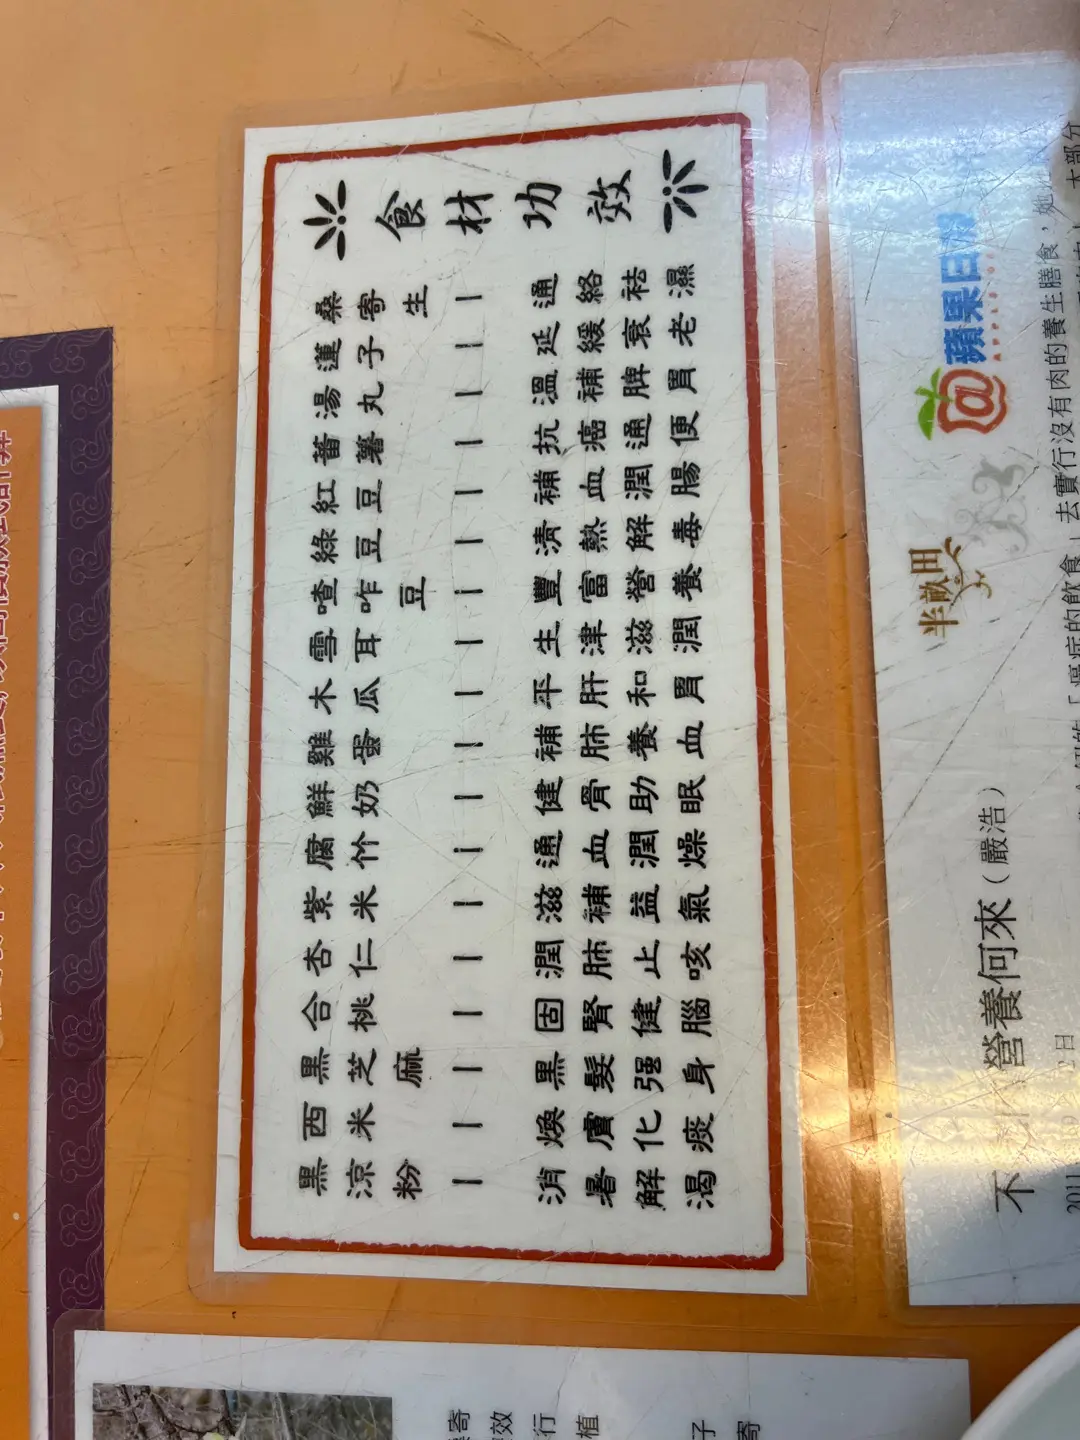 食材功效
桑寄生 — 通絡祛濕
蓮子 — 延緩衰老
湯丸 — 溫補脾胃
蕃薯 — 抗癌通便
紅豆 — 補血潤腸
綠豆 — 清熱解毒
喳咋豆 — 豐富營養
雪耳 — 生津滋潤
木瓜 — 平肝和胃
雞蛋 — 補肺養血
鮮奶 — 健骨助眠
腐竹 — 通血潤燥
紫米 — 滋補益氣
杏仁 — 潤肺止咳
合桃 — 固腎健腦
黑芝麻 — 黑髮强身
西米 — 煥膚化痰
黑涼粉 — 消暑解渴
半畝田 蘋果日報
不 營養何來（嚴浩）
2011 日
「癌症的飲食」去實行沒有肉的養生膳食，她
大部分
寄
效
行
植
子
寄